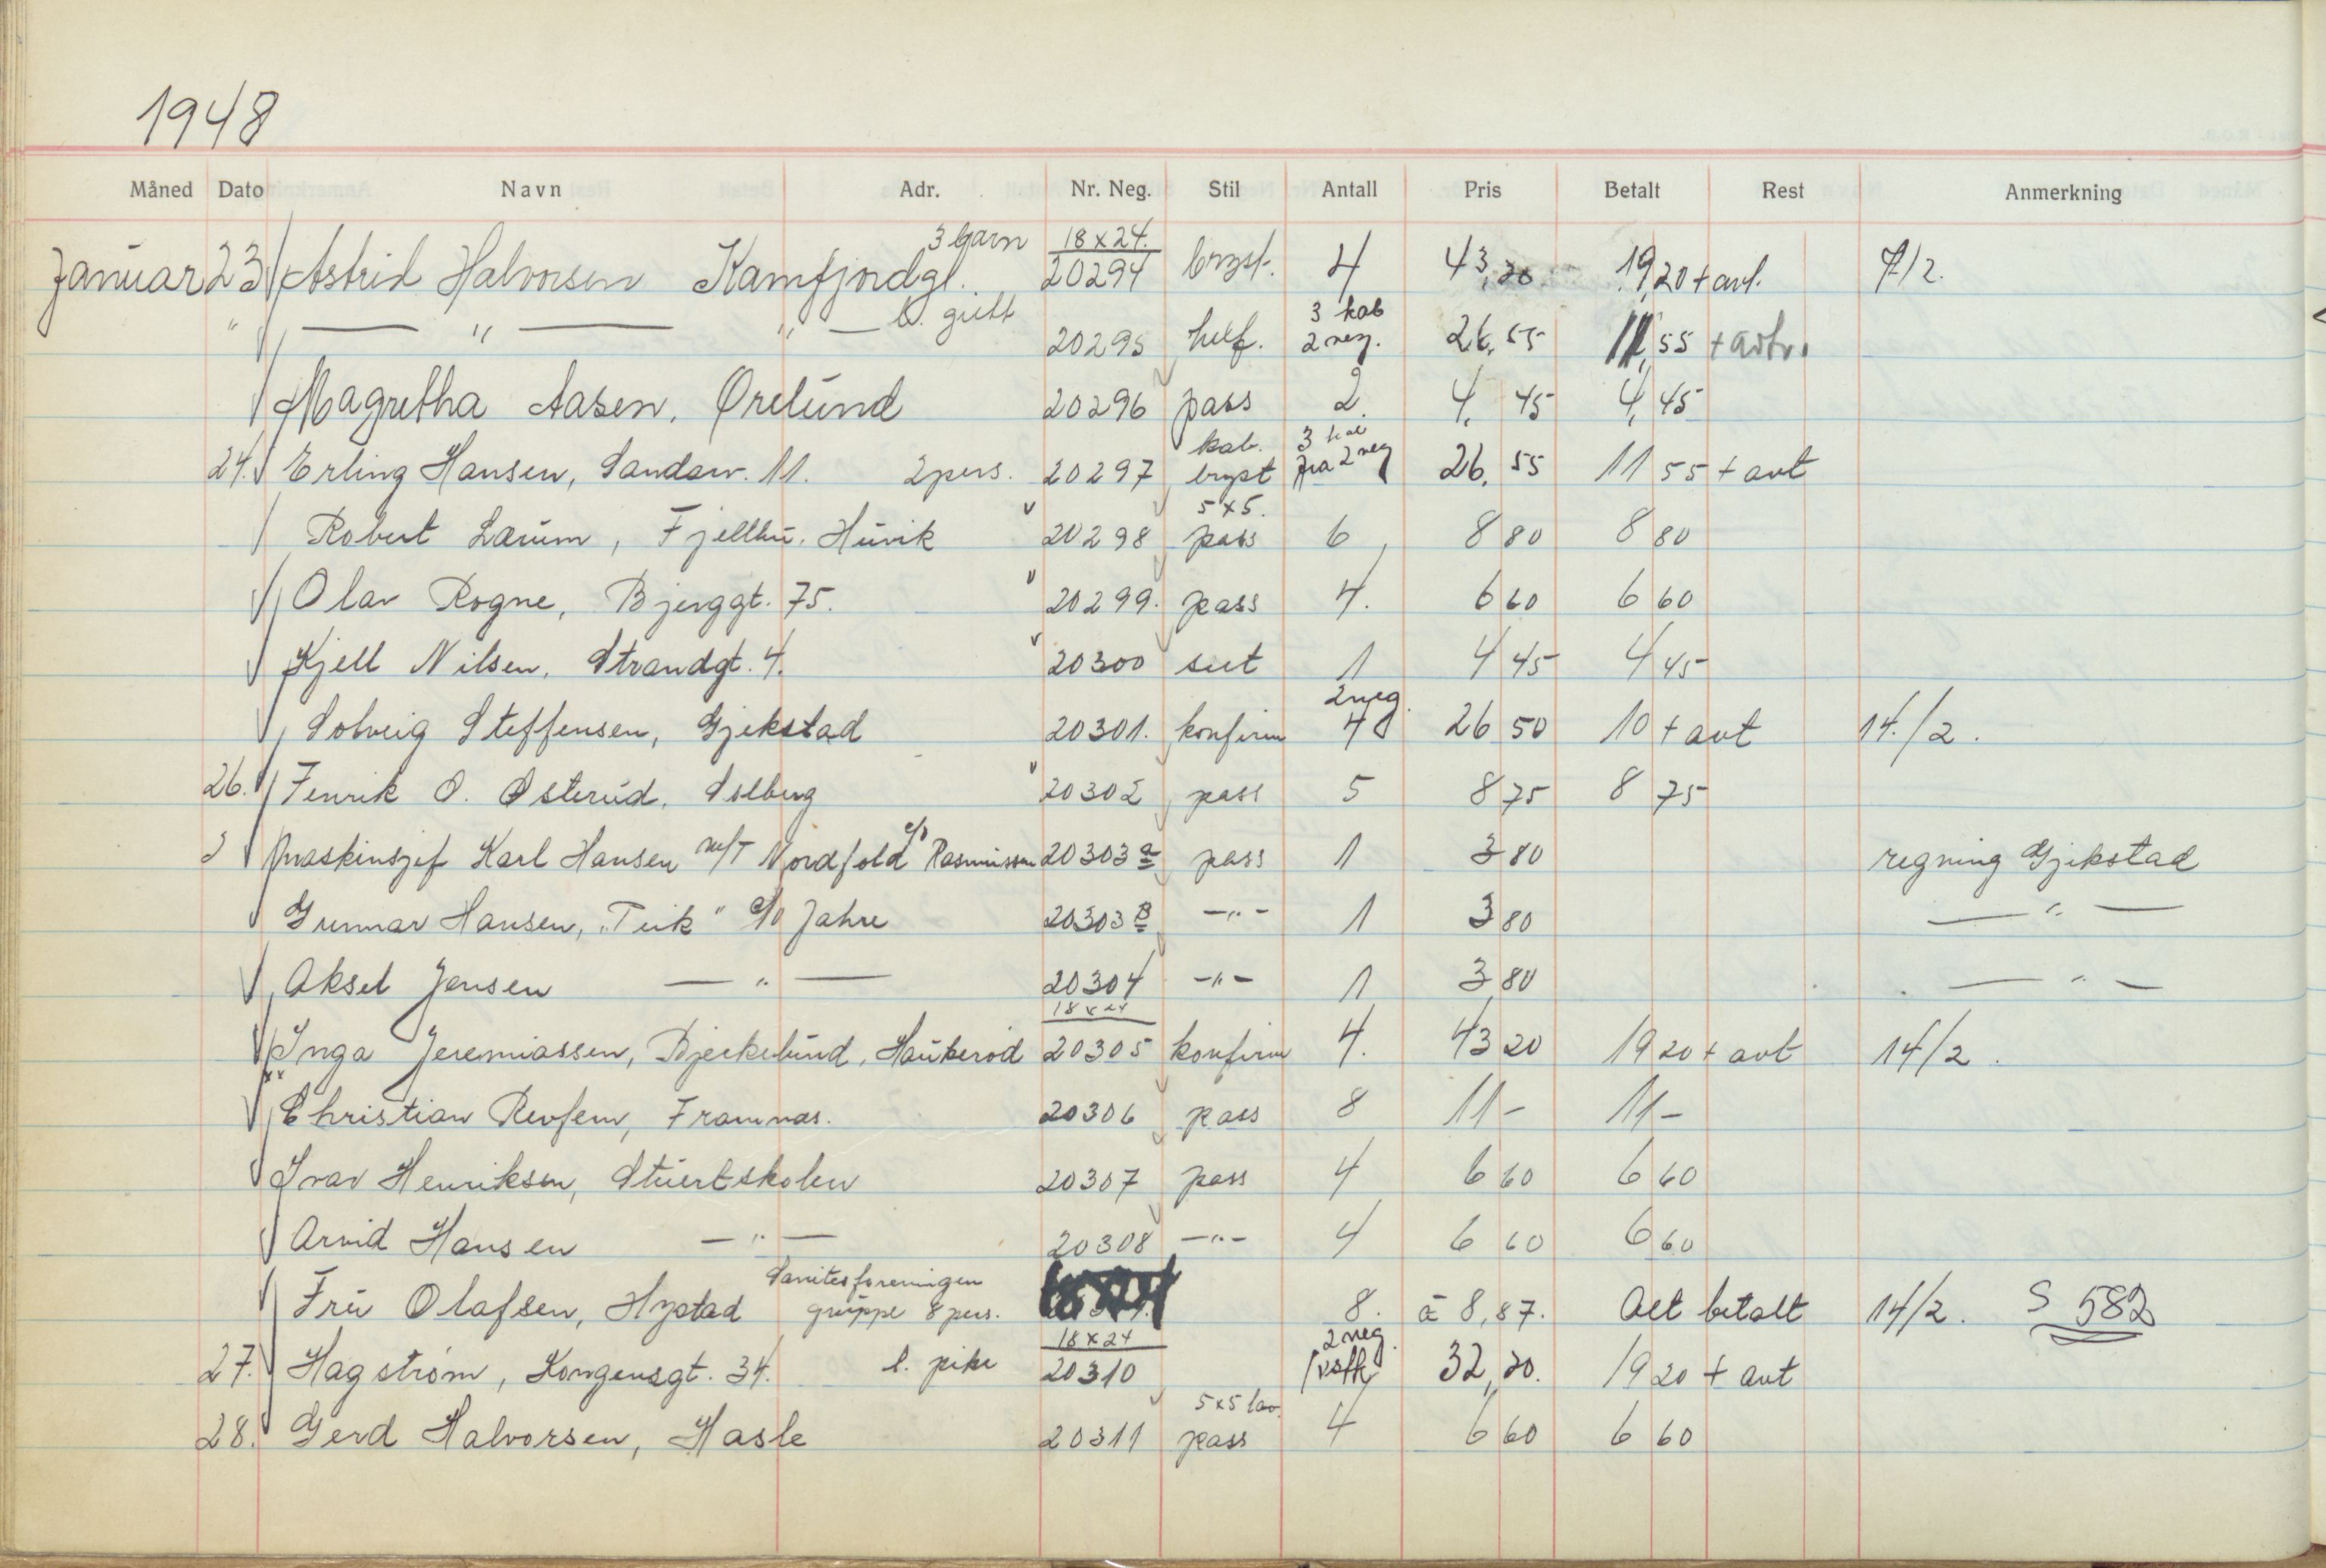 1948
Måned Dato Navn Adr. Nr. Neg. Stil Antall Pris Betalt Rest Anmerkning
Januar 23 Astrid Halvorsen Kamfjordgt. 3 barn 18x24. 20294 bryst. 4 43,20 19,20 + avt. 7/2.
" — " — " — l. gutt 20295 helf. 3 kab 2 neg. 26,55 11,55 + avtr.
Magretha Aasen, Ørelund 20296 pass 2. 4,45 4,45
24. Erling Hansen, Sandarv. 11. 2 pers. 20297 kab. bryst 3 kab fra 2 neg 26,55 11 55 + avt
Robert Larum, Fjellbu, Huvik 20298 5x5. pass 6 8 80 8 80
Olav Rogne, Bjerggt. 75. 20299. pass 4. 6 60 6 60
Kjell Nilsen, Strandgt. 4. 20300 sert 1 4 45 4 45
Solveig Steffensen, Gjekstad 20301. konfirm 2 neg. 4 26 50 10 + avt 14./2.
26. Fenrik O. Østerud, Solberg 20302 pass 5 8 75 8 75
Maskinsjef Karl Hansen m/T Nordfold c/o Rasmussen 20303 a pass 1 3 80 regning Gjekstad
Gunnar Hansen, "Teik" c/o Jahre 20303 B —"— 1 3 80 — " —
Aksel Jensen — " — 20304 —"— 1 3 80 — " —
Inga Jeremiassen, Bjerkelund, Haukerød 18x24 20305 konfirm 4. 43 20 19 20 + avt 14/2.
Christian Revfem, Framnæs. 20306 pass 8 11 – 11 –
Ivar Henriksen, Stuertskolen 20307 pass 4 6 60 6 60
Arvid Hansen — " — 20308 —"— 4 6 60 6 60
Fru Olafsen, Hystad Sanitesforeningen gruppe 8 pers. 8. á 8,87. Alt betalt 14/2. S 582
27. Hagstrøm, Kongensgt. 34. l. pike 18x24 20310 2 neg. 32,20. 19 20 + avt
28. Gerd Halvorsen, Hasle 20311 5x5 pass 4 6 60 6 60